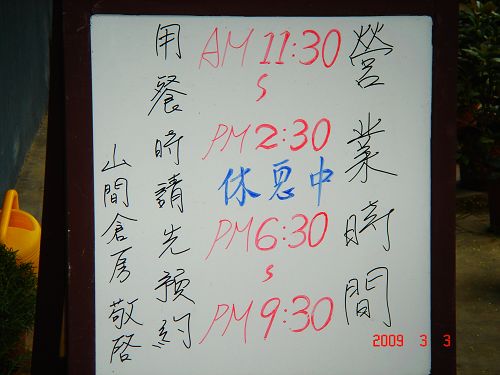 營業時間
AM 11:30
S
PM 2:30
休息中
PM 6:30
S
PM 9:30
用餐時請先預約
山間倉房敬啓
2009 3 3